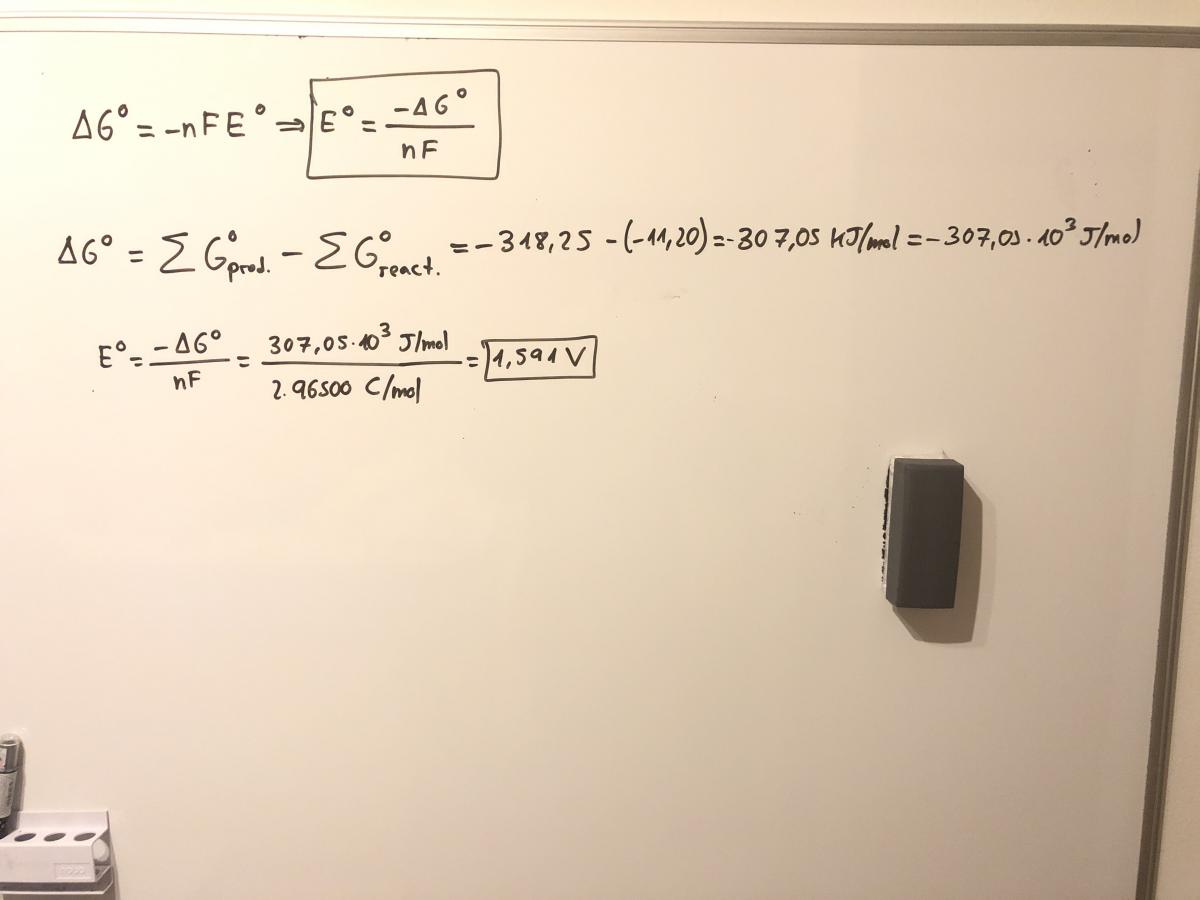 ΔG° = -nFE° ⇒ E° = -ΔG° / nF
ΔG° = ∑G°prod. - ∑G°react. = -318,25 - (-11,20) = -307,05 kJ/mol = -307,05·10³ J/mol
E° = -ΔG° / nF = 307,05·10³ J/mol / 2·96500 C/mol = 1,591 V